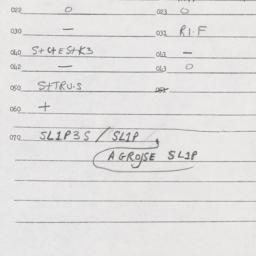 022 O 023 O
030 — 031 R1.F
040 S+4ES+K3 041 —
042 — 043 O
050 S+TRU.S 051
060 +
070 SL1P3S / SL1P
AGROJSE SL1P